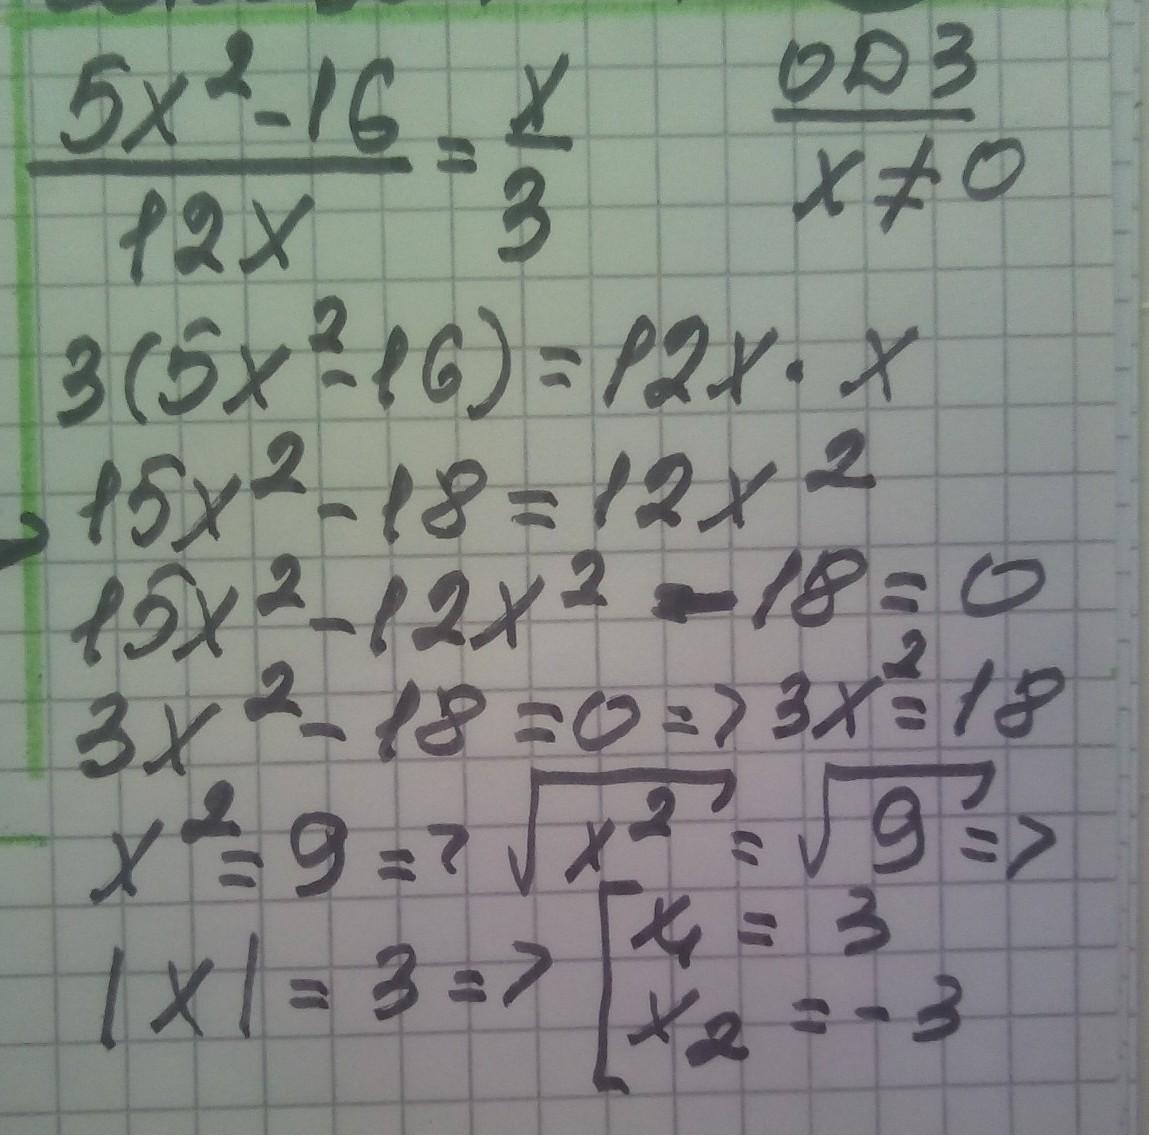 (5x²-16)/(12x) = x/3
ОДЗ
x ≠ 0
3(5x²-16) = 12x · x
15x² - 18 = 12x²
15x² - 12x² - 18 = 0
3x² - 18 = 0 => 3x² = 18
x² = 9 => √x² = √9 =>
|x| = 3 => [x₁ = 3
x₂ = -3